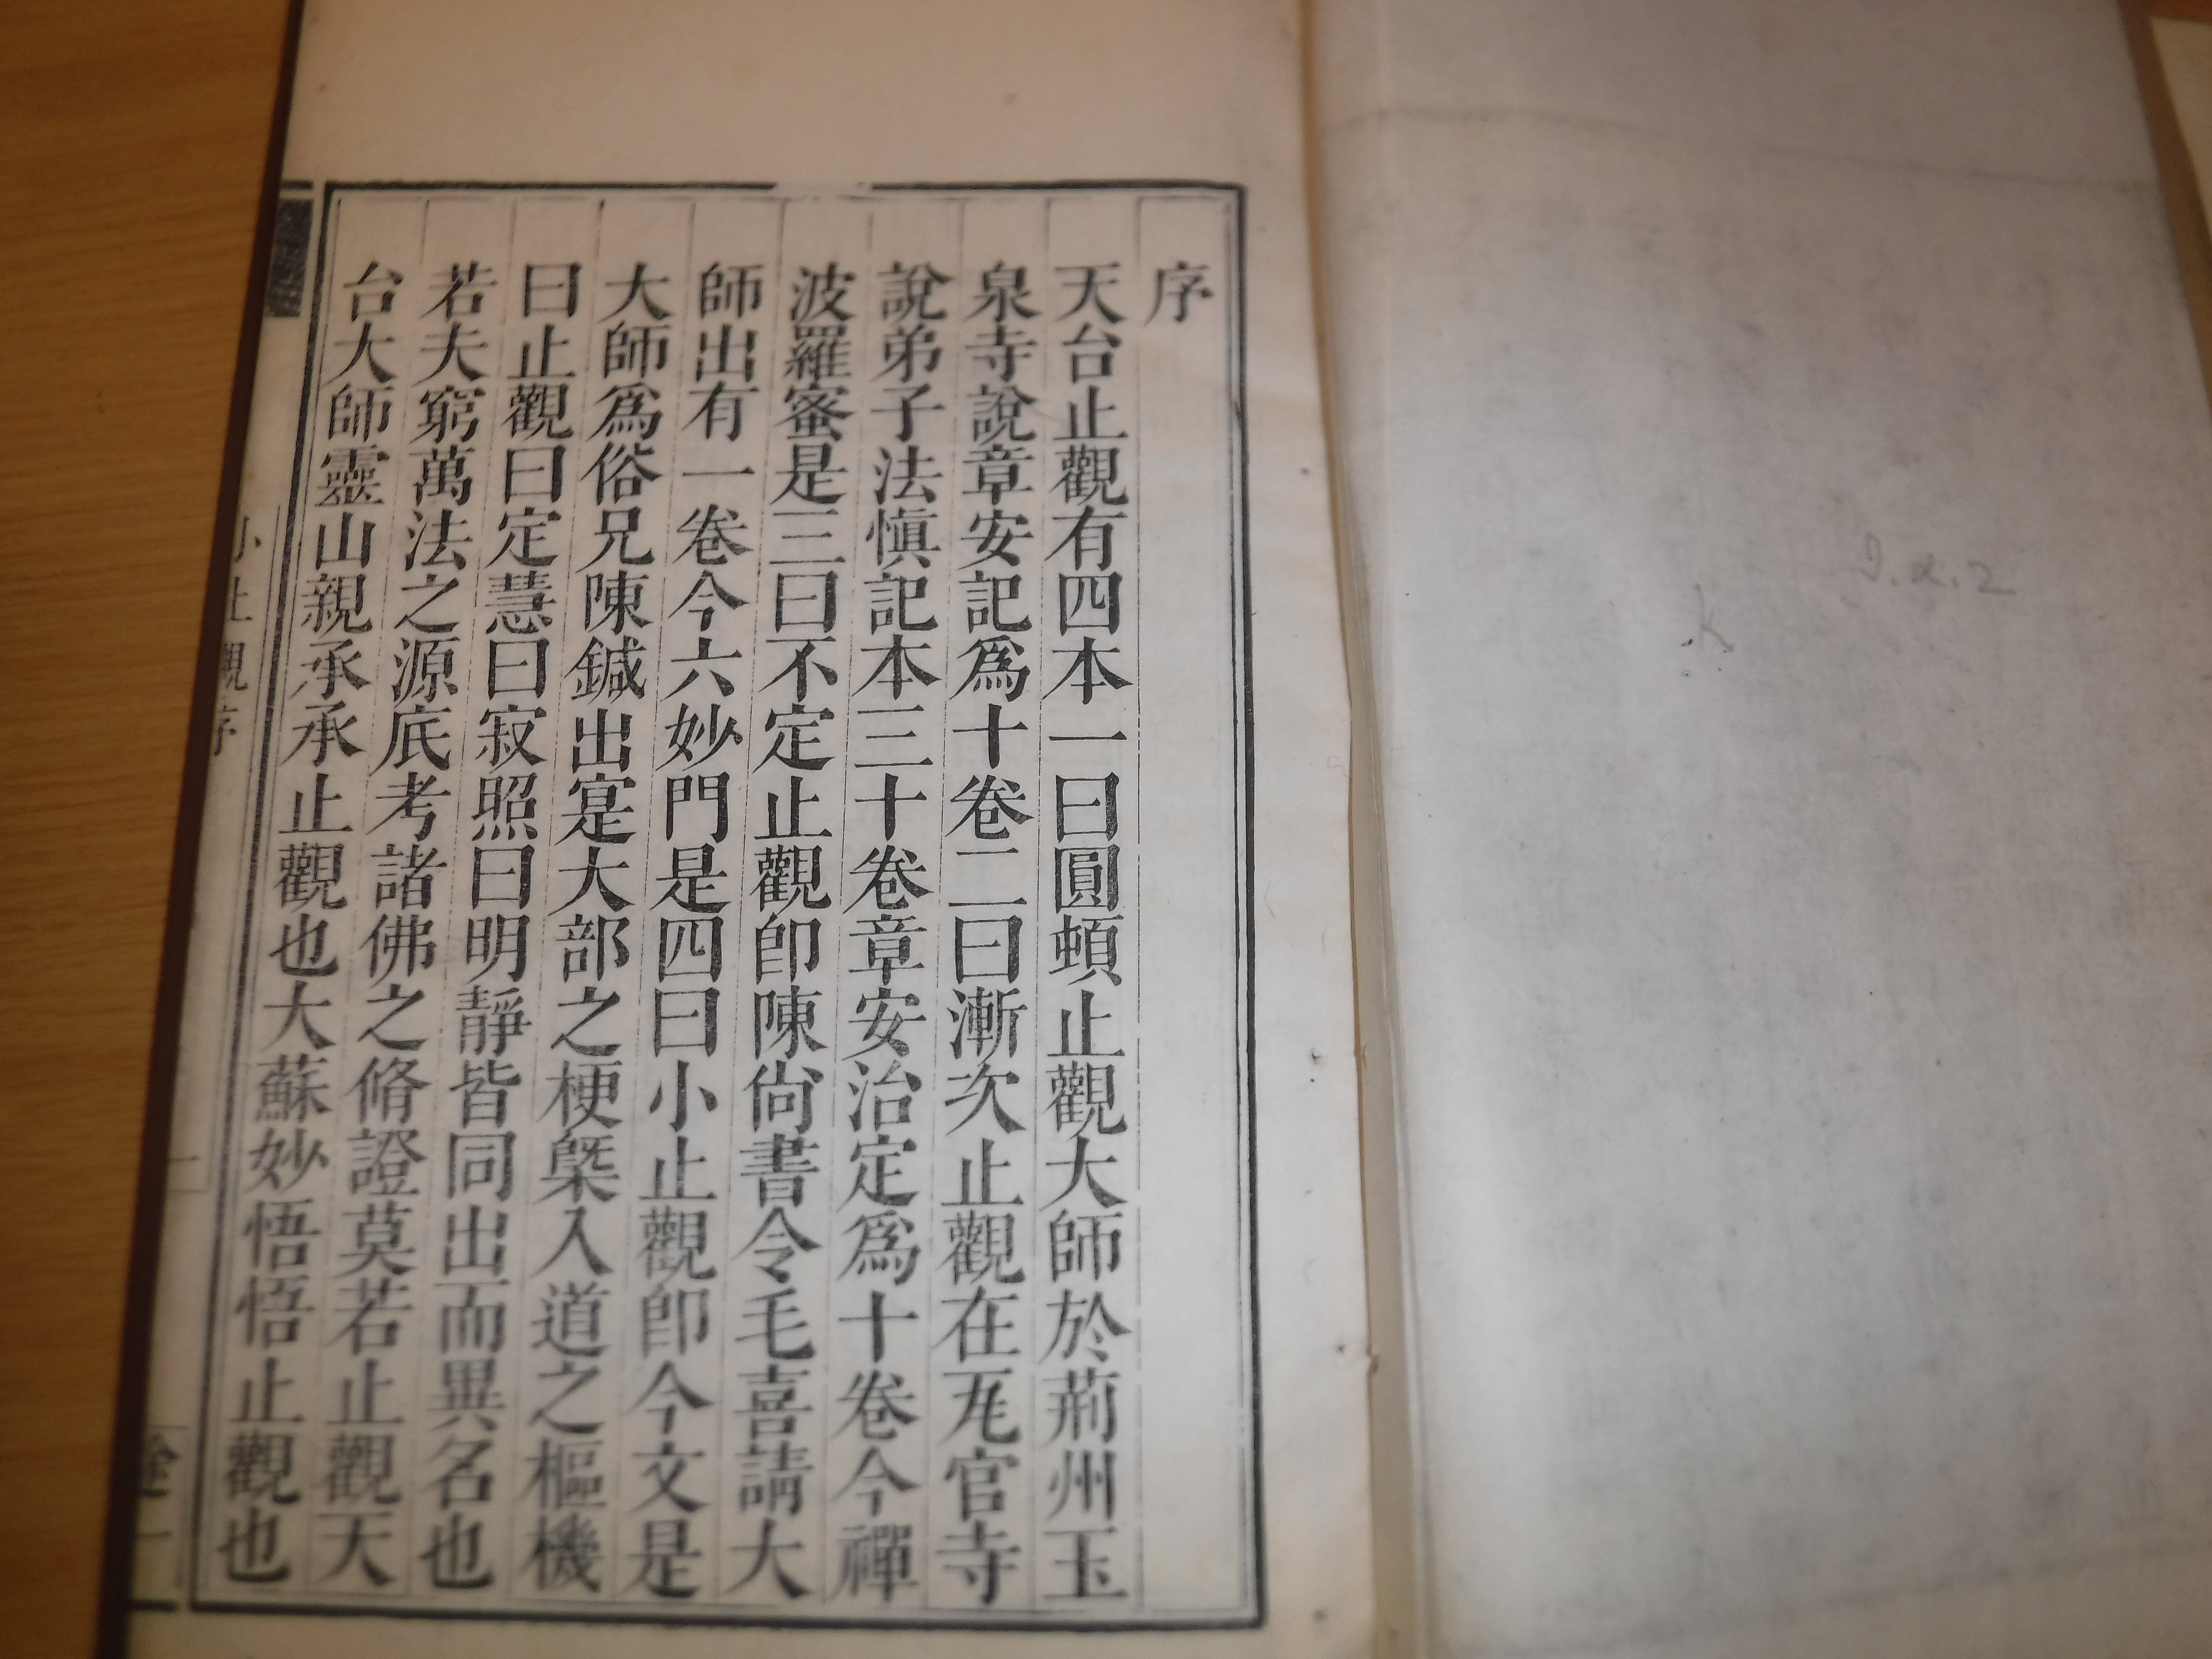 序
天台止觀有四本一曰圓頓止觀大師於荊州玉
泉寺說章安記爲十卷二曰漸次止觀在瓦官寺
說弟子法愼記本三十卷章安治定爲十卷今禪
波羅蜜是三曰不定止觀卽陳尙書令毛喜請大
師出有一卷今六妙門是四曰小止觀卽今文是
大師爲俗兄陳鍼出寔大部之梗槩入道之樞機
曰止觀曰定慧曰寂照曰明靜皆同出而異名也
若夫窮萬法之源底考諸佛之脩證莫若止觀天
台大師靈山親承承止觀也大蘇妙悟悟止觀也
小止觀序
一
J.α.2
K